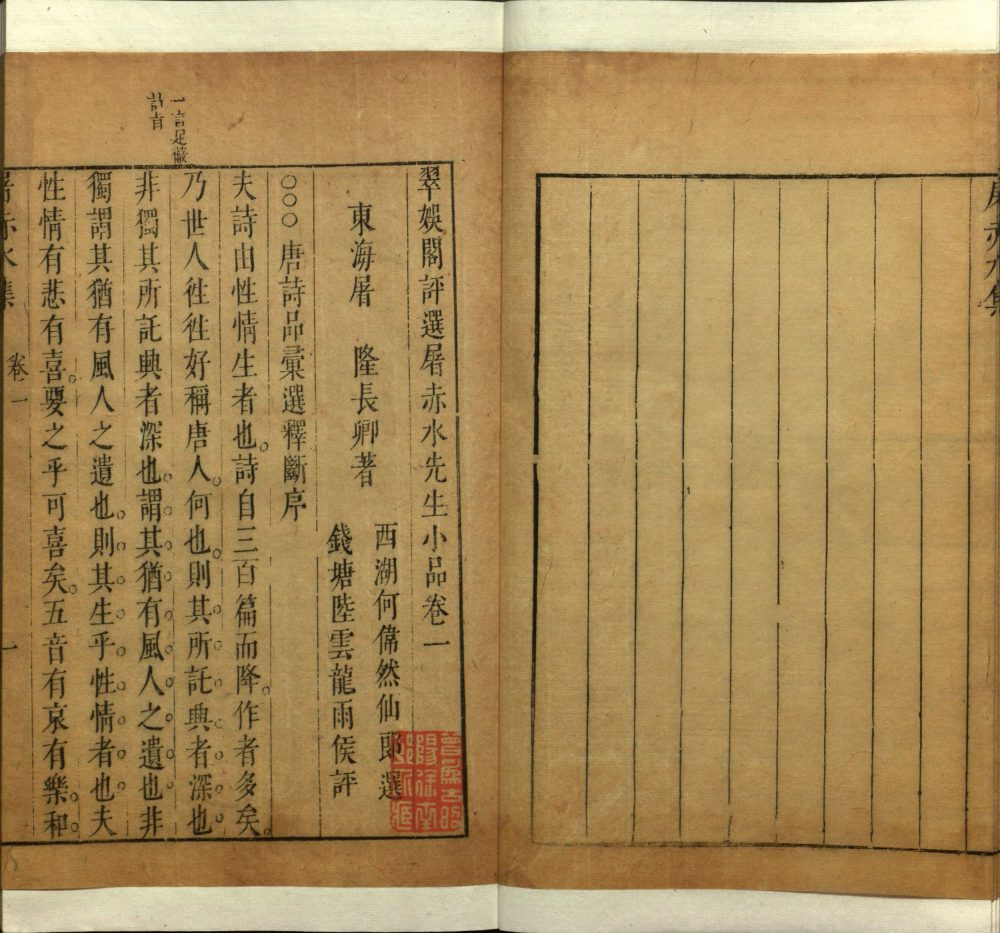 屠赤水集
翠娛閣評選屠赤水先生小品卷一
東海屠　隆長卿著
西湖何偉然仙郎選
錢塘陸雲龍雨侯評
○○○唐詩品彙選釋斷序
夫詩由性情生者也。詩自三百篇而降。作者多矣。
乃世人徃徃好稱唐人。何也。則其所託興者深也
非獨其所託興者深也。謂其猶有風人之遺也非
獨謂其猶有風人之遺也。則其生乎性情者也夫
性情有悲有喜。要之乎可喜矣。五音有哀有樂。和
一言足蔽
詩旨
屠赤水集　卷一　一
曾爲古昭
陽徐南